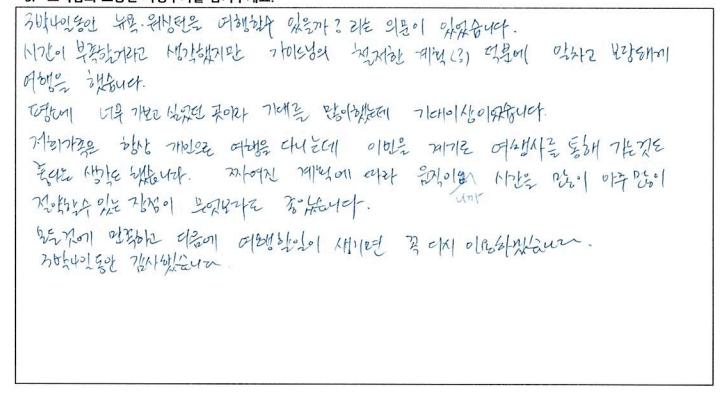 3박4일동안 뉴욕.워싱턴을 여행할수 있을까? 라는 의문이 있었습니다.
시간이 부족할거라고 생각했지만 가이드님의 철저한 계획(?) 덕분에 알차고 보람되게
여행을 했습니다.
평소에 너무 가보고 싶었던 곳이라 기대를 많이했는데 기대이상이었습니다.
저희가족은 항상 개인으로 여행을 다니는데 이번을 계기로 여행사를 통해 가는것도
좋다는 생각도 했습니다. 짜여진 계획에 따라 움직이니까 시간을 많이 아주 많이
절약할수 있는 장점이 무엇보다도 좋았습니다.
모든것에 만족하고 다음에 여행할일이 생기면 꼭 다시 이용하겠습니다.
3박4일동안 감사했습니다